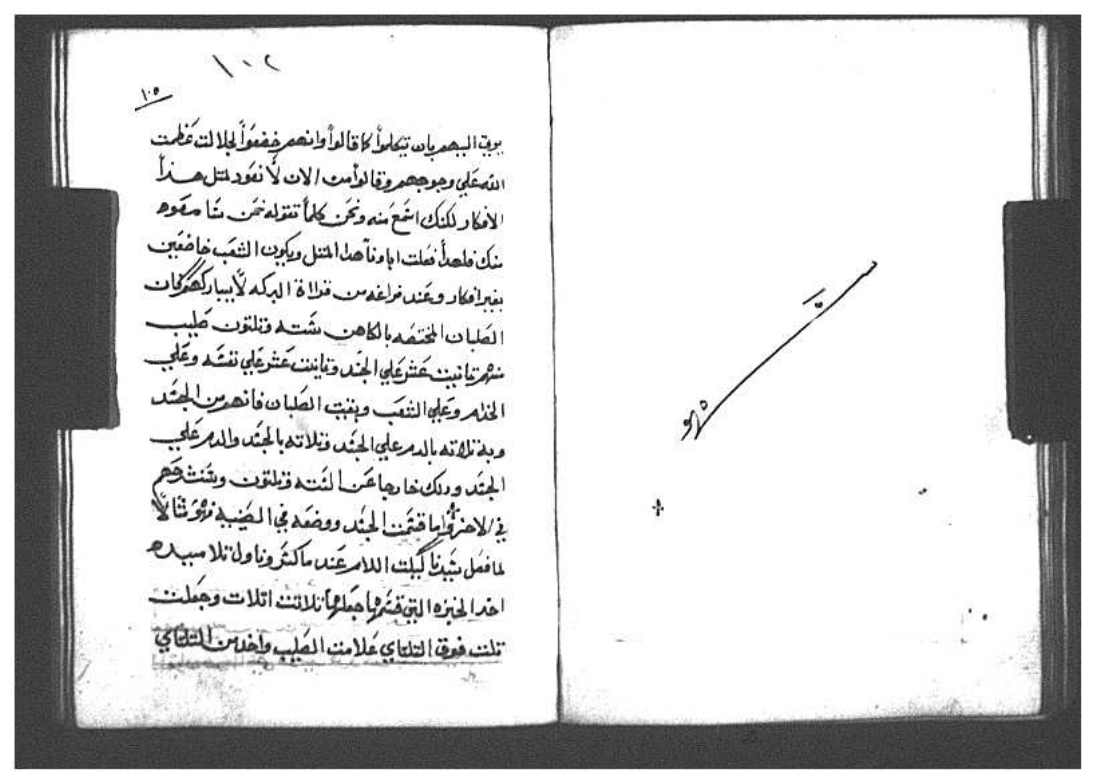 ١٠٢
١٠٥
اليهم بان تيكلموا كا قالوا وانهم خضعوا لجلالت عظمت
الله علي وجوههم وقالوا من الان لا نعود لمتل هذا
الافكار لكنك اسمع منه ونحن كلما تقوله نحن
منك فلهدا فعلت اباونا هدا المتل ويكون الشعب خاضعين
بغير افكار وعند فراغه من قراة البركه
الصلبان المختصه بالكاهن سته وتلتون صليب
منهم تمانيت عشر علي الجسد وتمانيت عشر علي نفسه وعلي
الخدام وعلي الشعب وبقيت الصلبان فانهم من الجسد
تلاته بالدم علي الجسد وتلاته بالجسد والدم علي
الجسد ودلك خارجا عن السته وتلتون
في الاخر قسمت الجسد ووضعه في الصينيه
لما فعل سيدنا ليلت الالام عند ما كسر وناول تلاميده
احد الخبزه التي قسمها جعلها تلاتت اتلات وجعلت
تلت فوق التلتاي علامت الصليب واخد من التلتاي